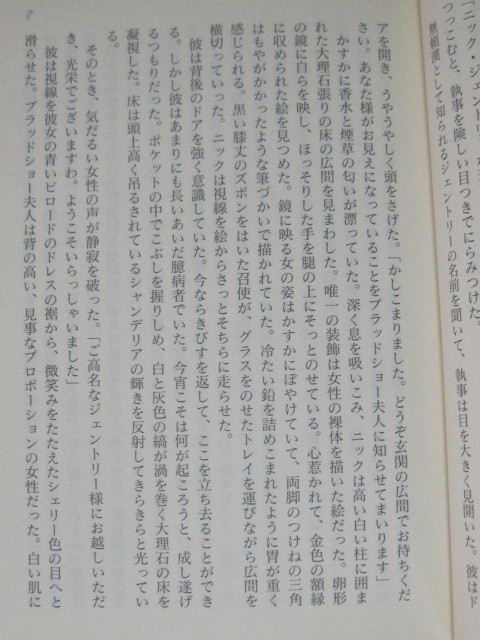 「ニック・ジェントリー
つっこむと、執事を険しい目つきでにらみつけた。
無頼漢として知られるジェントリーの名前を聞いて、執事は目を大きく見開いた。彼はド
アを開き、うやうやしく頭をさげた。「かしこまりました。どうぞ玄関の広間でお待ちくだ
さい。あなた様がお見えになっていることをブラッドショー夫人に知らせてまいります」
かすかに香水と煙草の匂いが漂っていた。深く息を吸いこみ、ニックは高い白い柱に囲ま
れた大理石張りの床の広間を見まわした。唯一の装飾は女性の裸体を描いた絵だった。卵形
の鏡に自らを映し、ほっそりした手を腿の上にそっとのせている。心惹かれて、金色の額縁
に収められた絵を見つめた。鏡に映る女の姿はかすかにぼやけていて、両脚のつけねの三角
はもやがかかったような筆づかいで描かれていた。冷たい鉛を詰めこまれたように胃が重く
感じられる。黒い膝丈のズボンをはいた召使が、グラスをのせたトレイを運びながら広間を
横切っていった。ニックは視線を絵からさっとそちらに走らせた。
彼は背後のドアを強く意識していた。今ならきびすを返して、ここを立ち去ることができ
る。しかし彼はあまりにも長いあいだ臆病者でいた。今宵こそは何が起ころうと、成し遂げ
るつもりだった。ポケットの中でこぶしを握りしめ、白と灰色の縞が渦を巻く大理石の床を
凝視した。床は頭上高く吊るされているシャンデリアの輝きを反射してきらきらと光ってい
る。
そのとき、気だるい女性の声が静寂を破った。「ご高名なジェントリー様にお越しいただ
き、光栄でございますわ。ようこそいらっしゃいました」
彼は視線を彼女の青いビロードのドレスの裾から、微笑みをたたえたシェリー色の目へと
滑らせた。ブラッドショー夫人は背の高い、見事なプロポーションの女性だった。白い肌に
7